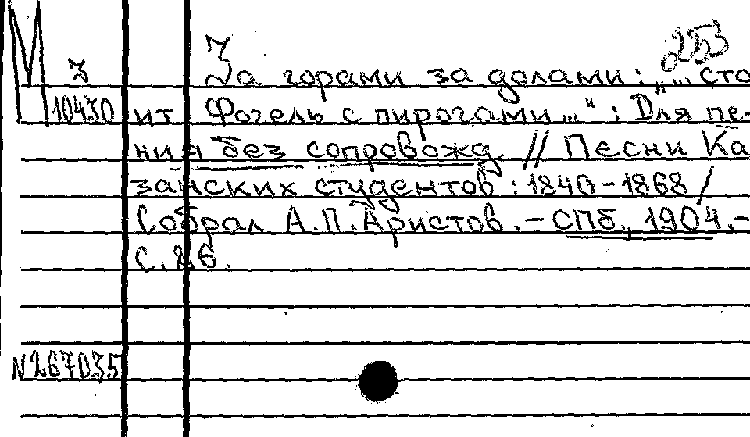 253
М З
За горами за долами: „... сто
10430
ит Фогель с пирогами...“ : Для пе-
ния без сопровожд. // Песни Ка
занских студентов : 1840-1868 /
Собрал А.П. Аристов. - СПб., 1904. -
С. 26.
N267035